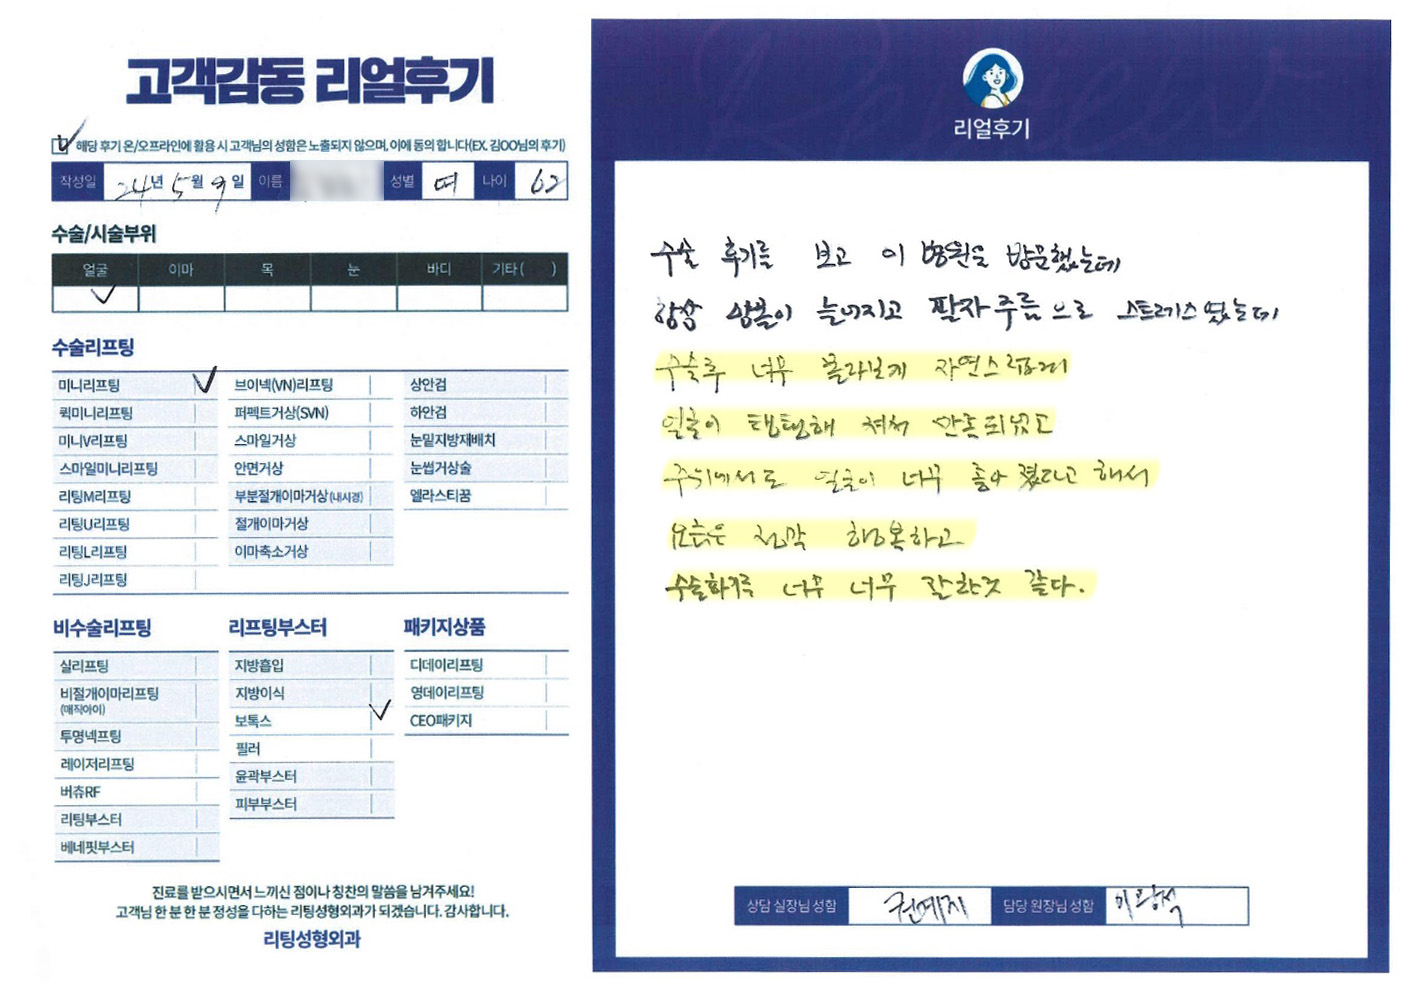 고객감동 리얼후기
해당 후기 온/오프라인에 활용 시 고객님의 성함은 노출되지 않으며, 이에 동의 합니다(EX. 김OO님의 후기)
작성일 24년 5월 9일 이름 성별 여 나이 62
수술/시술부위
얼굴 이마 목 눈 바디 기타 ( )
수술리프팅
미니리프팅 브이넥(VN)리프팅 상안검
퀵미니리프팅 퍼펙트거상(SVN) 하안검
미니V리프팅 스마일거상 눈밑지방재배치
스마일미니리프팅 안면거상 눈썹거상술
리팅M리프팅 부분절개이마거상(내시경) 엘라스티꿈
리팅U리프팅 절개이마거상
리팅L리프팅 이마축소거상
리팅J리프팅
비수술리프팅 리프팅부스터 패키지상품
실리프팅 지방흡입 디데이리프팅
비절개이마리프팅 지방이식 영데이리프팅
(매직아이)
보톡스 CEO패키지
투명넥프팅 필러
레이저리프팅 윤곽부스터
버츄RF 피부부스터
리팅부스터
베네핏부스터
진료를 받으시면서 느끼신 점이나 칭찬의 말씀을 남겨주세요!
고객님 한 분 한 분 정성을 다하는 리팅성형외과가 되겠습니다. 감사합니다.
리팅성형외과
리얼후기
수술 후기를 보고 이 병원을 방문했는데
항상 양볼이 늘어지고 팔자주름으로 스트레스였는데
수술후 너무 몰라보게 자연스럽고
얼굴이 탱탱해 져서 만족되었고
주위에서도 얼굴이 너무 좋아졌다고 해서
요즘은 정말 행복하고
수술하기를 너무 너무 잘한것 같다.
상담 실장님 성함 권예지 담당 원장님 성함